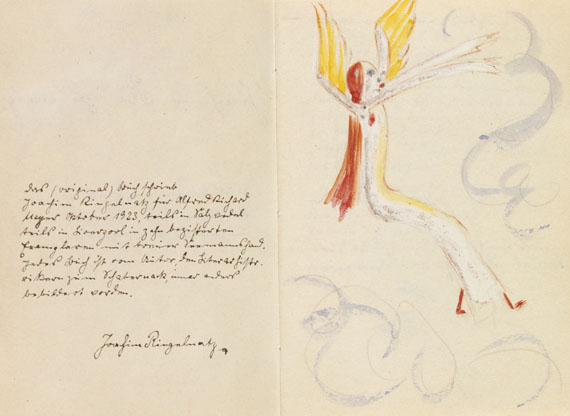 Das (original) Buch schrieb
Joachim Ringelnatz für Alfred Richard
Meyer Oktober 1923, teils in Salzwedel
teils in Liverpool in zehn bezifferten
Exemplaren mit toniger Seemannshand.
Jedes Buch ist vom Autor, den
zum Schabernack, immer anders
bebildert worden.
Joachim Ringelnatz.